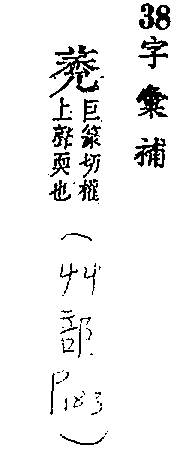 38字彙補
巨篆切權
上聲耎也
(艸部P183)